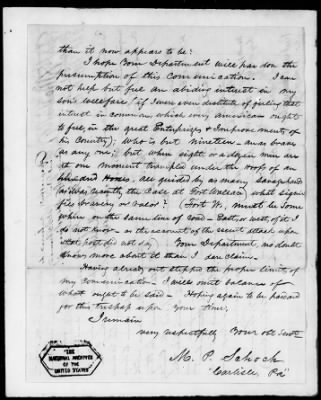 than it now appears to be.
I hope Your Department will pardon the
presumption of this Communication. I can
not help but feel an abiding interest in my
son's wellfare, (if I were even destitute of feeling that
interest in common, which every American ought
to feel, in the great Enterprizes & Improvements of
his Country); Who is but nineteen - and brave
as any one; but when eight or a dozen men are
at one moment trampled under the roofs of an
hundred Horses. all guided by as many savages
as was recently the Case at Fort what signi
fies bravery or valor? (Fort W. must be some
where on the same line of road - East, or west, of it I
do not know - as the account of the recent attack upon
that post did not say) Your Department no doubt
knows more about it than I dare claim.
Having already out stepped the proper limit of
my Communication - I will omit balance of
what ought to be said - Hoping again to be pardoned
for this trespass upon Your time,
I remain
very respectfully Your obt Servt
M. P. Schock
Carlisle, Pa
THE
NATIONAL ARCHIVES
OF THE
UNITED STATES